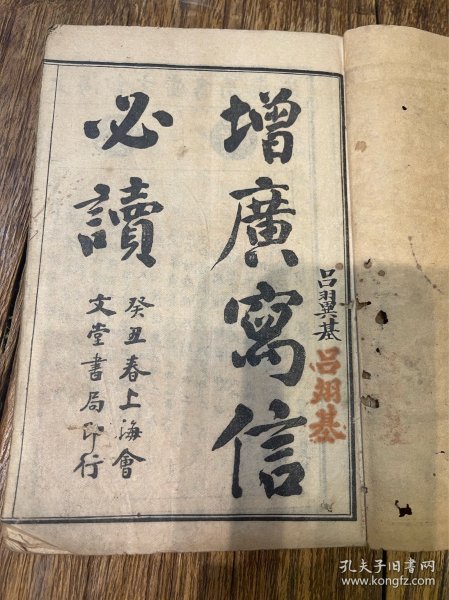 增廣寫信
必讀
癸丑春上海會
文堂書局印行
吕翼基
吕翊基
孔夫子旧书网
www.kongfz.com